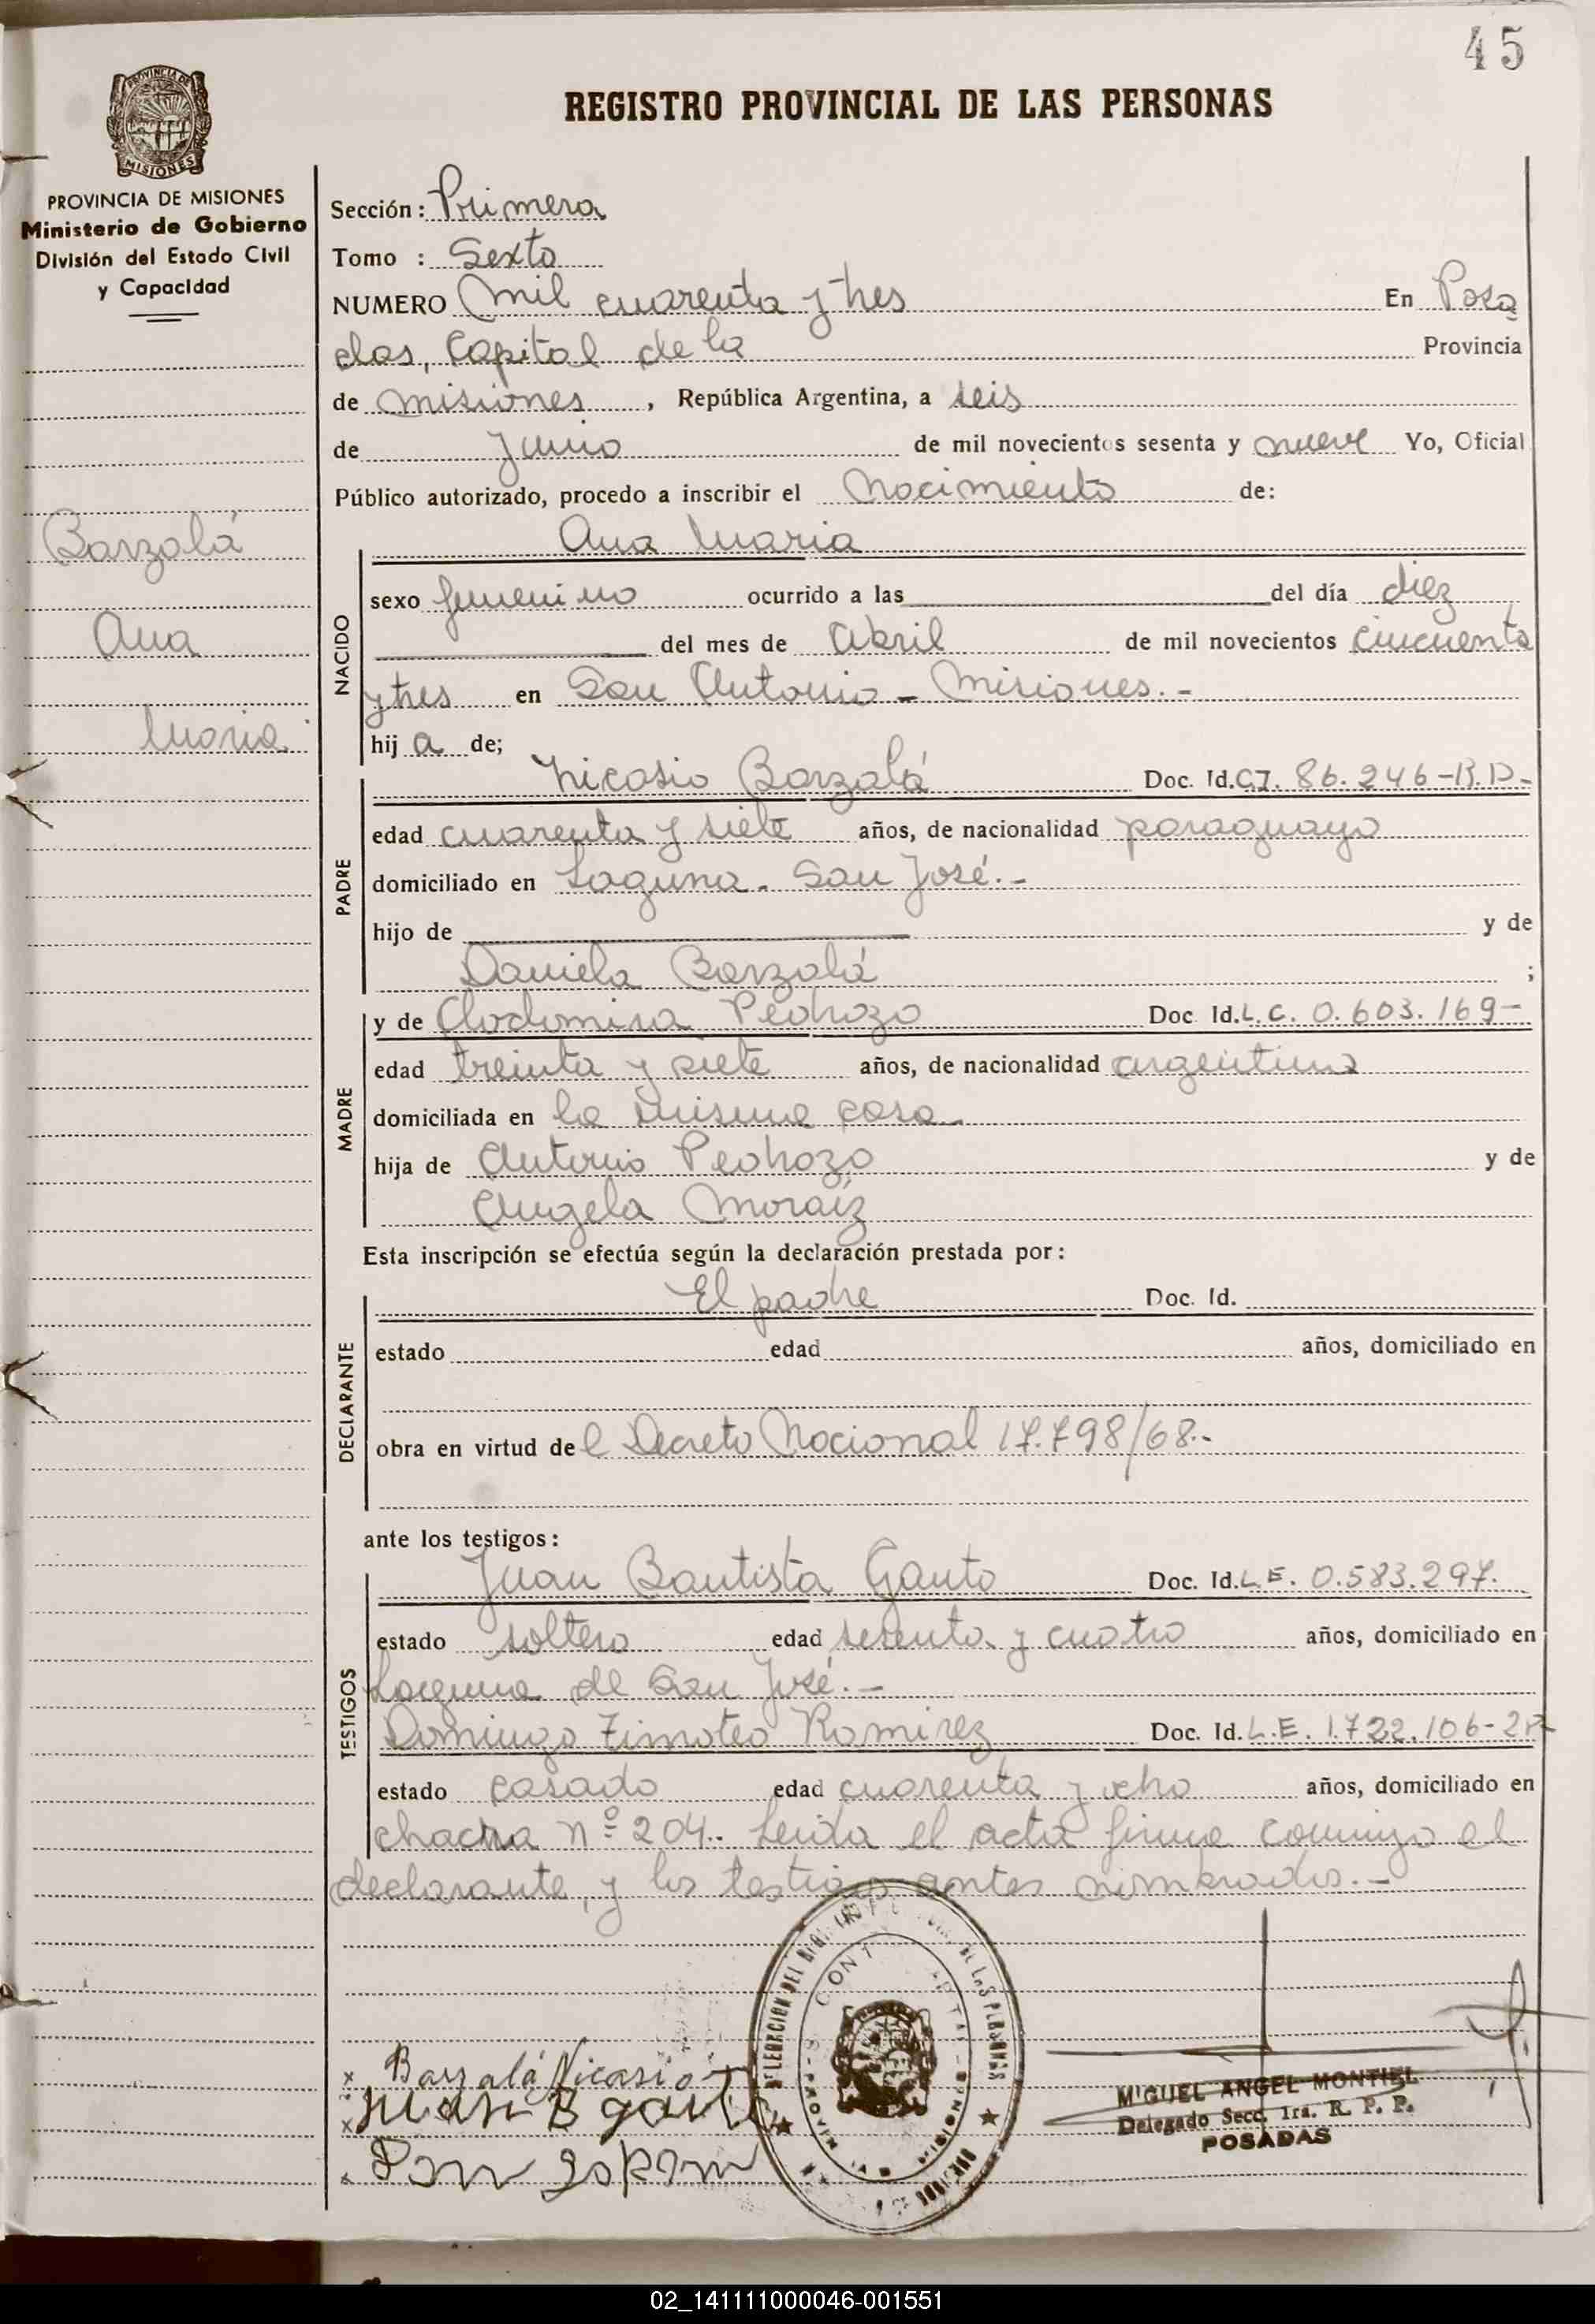 45
REGISTRO PROVINCIAL DE LAS PERSONAS
PROVINCIA DE MISIONES
PROVINCIA DE MISIONES
Ministerio de Gobierno
División del Estado Civil
y Capacidad
Barzalá
Ana
Maria
Sección: Primera
Tomo : Sexto
NUMERO Mil cuarenta y tres En Posa
das, Capital de la Provincia
de Misiones, República Argentina, a seis
de Junio de mil novecientos sesenta y nueve Yo, Oficial
Público autorizado, procedo a inscribir el Nacimiento de:
NACIDO
Ana Maria
sexo femenino ocurrido a las del día diez
del mes de Abril de mil novecientos cincuenta
y tres en San Antonio - Misiones.-
hija de;
PADRE
Nicasio Barzalá Doc. Id. C.I. 86.246-R.P-
edad cuarenta y siete años, de nacionalidad paraguayo
domiciliado en Laguna. San José.-
hijo de y de
Daniela Barzalá ;
MADRE
y de Clodomira Pedrozo Doc Id. L.C. 0.603.169-
edad treinta y siete años, de nacionalidad argentina
domiciliada en la misma casa
hija de Antonio Pedrozo y de
Angela Moraiz
Esta inscripción se efectúa según la declaración prestada por:
DECLARANTE
El padre Doc. Id.
estado edad años, domiciliado en
obra en virtud del Decreto Nacional 17.798/68.-
ante los testigos:
TESTIGOS
Juan Bautista Gauto Doc. Id. L.E. 0.583.297.
estado soltero edad sesenta y cuatro años, domiciliado en
Laguna de San José.-
Domingo Timoteo Ramirez Doc. Id. L.E. 1.722.106-
estado casado edad cuarenta y ocho años, domiciliado en
chacra nº 204. Leida el acta firma conmigo el
declarante, y los testigos antes nombrados.-
x Barzalá Nicasio
x Juan B gauto
x
DE LAS PERSONAS
MIGUEL ANGEL MONTIEL
Delegado Secc. 1ra. R. P. P.
POSADAS
02_141111000046-001551